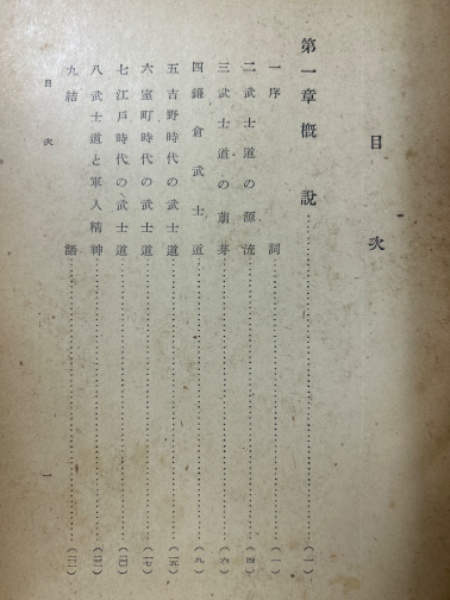 目次
第一章 概說……(一)
一 序詞……(一)
二 武士道の源流……(四)
三 武士道の萠芽……(六)
四 鎌倉武士道……(九)
五 吉野時代の武士道……(一五)
六 室町時代の武士道……(一七)
七 江戶時代の武士道
八 武士道と軍人精神
九 結語
目次 一